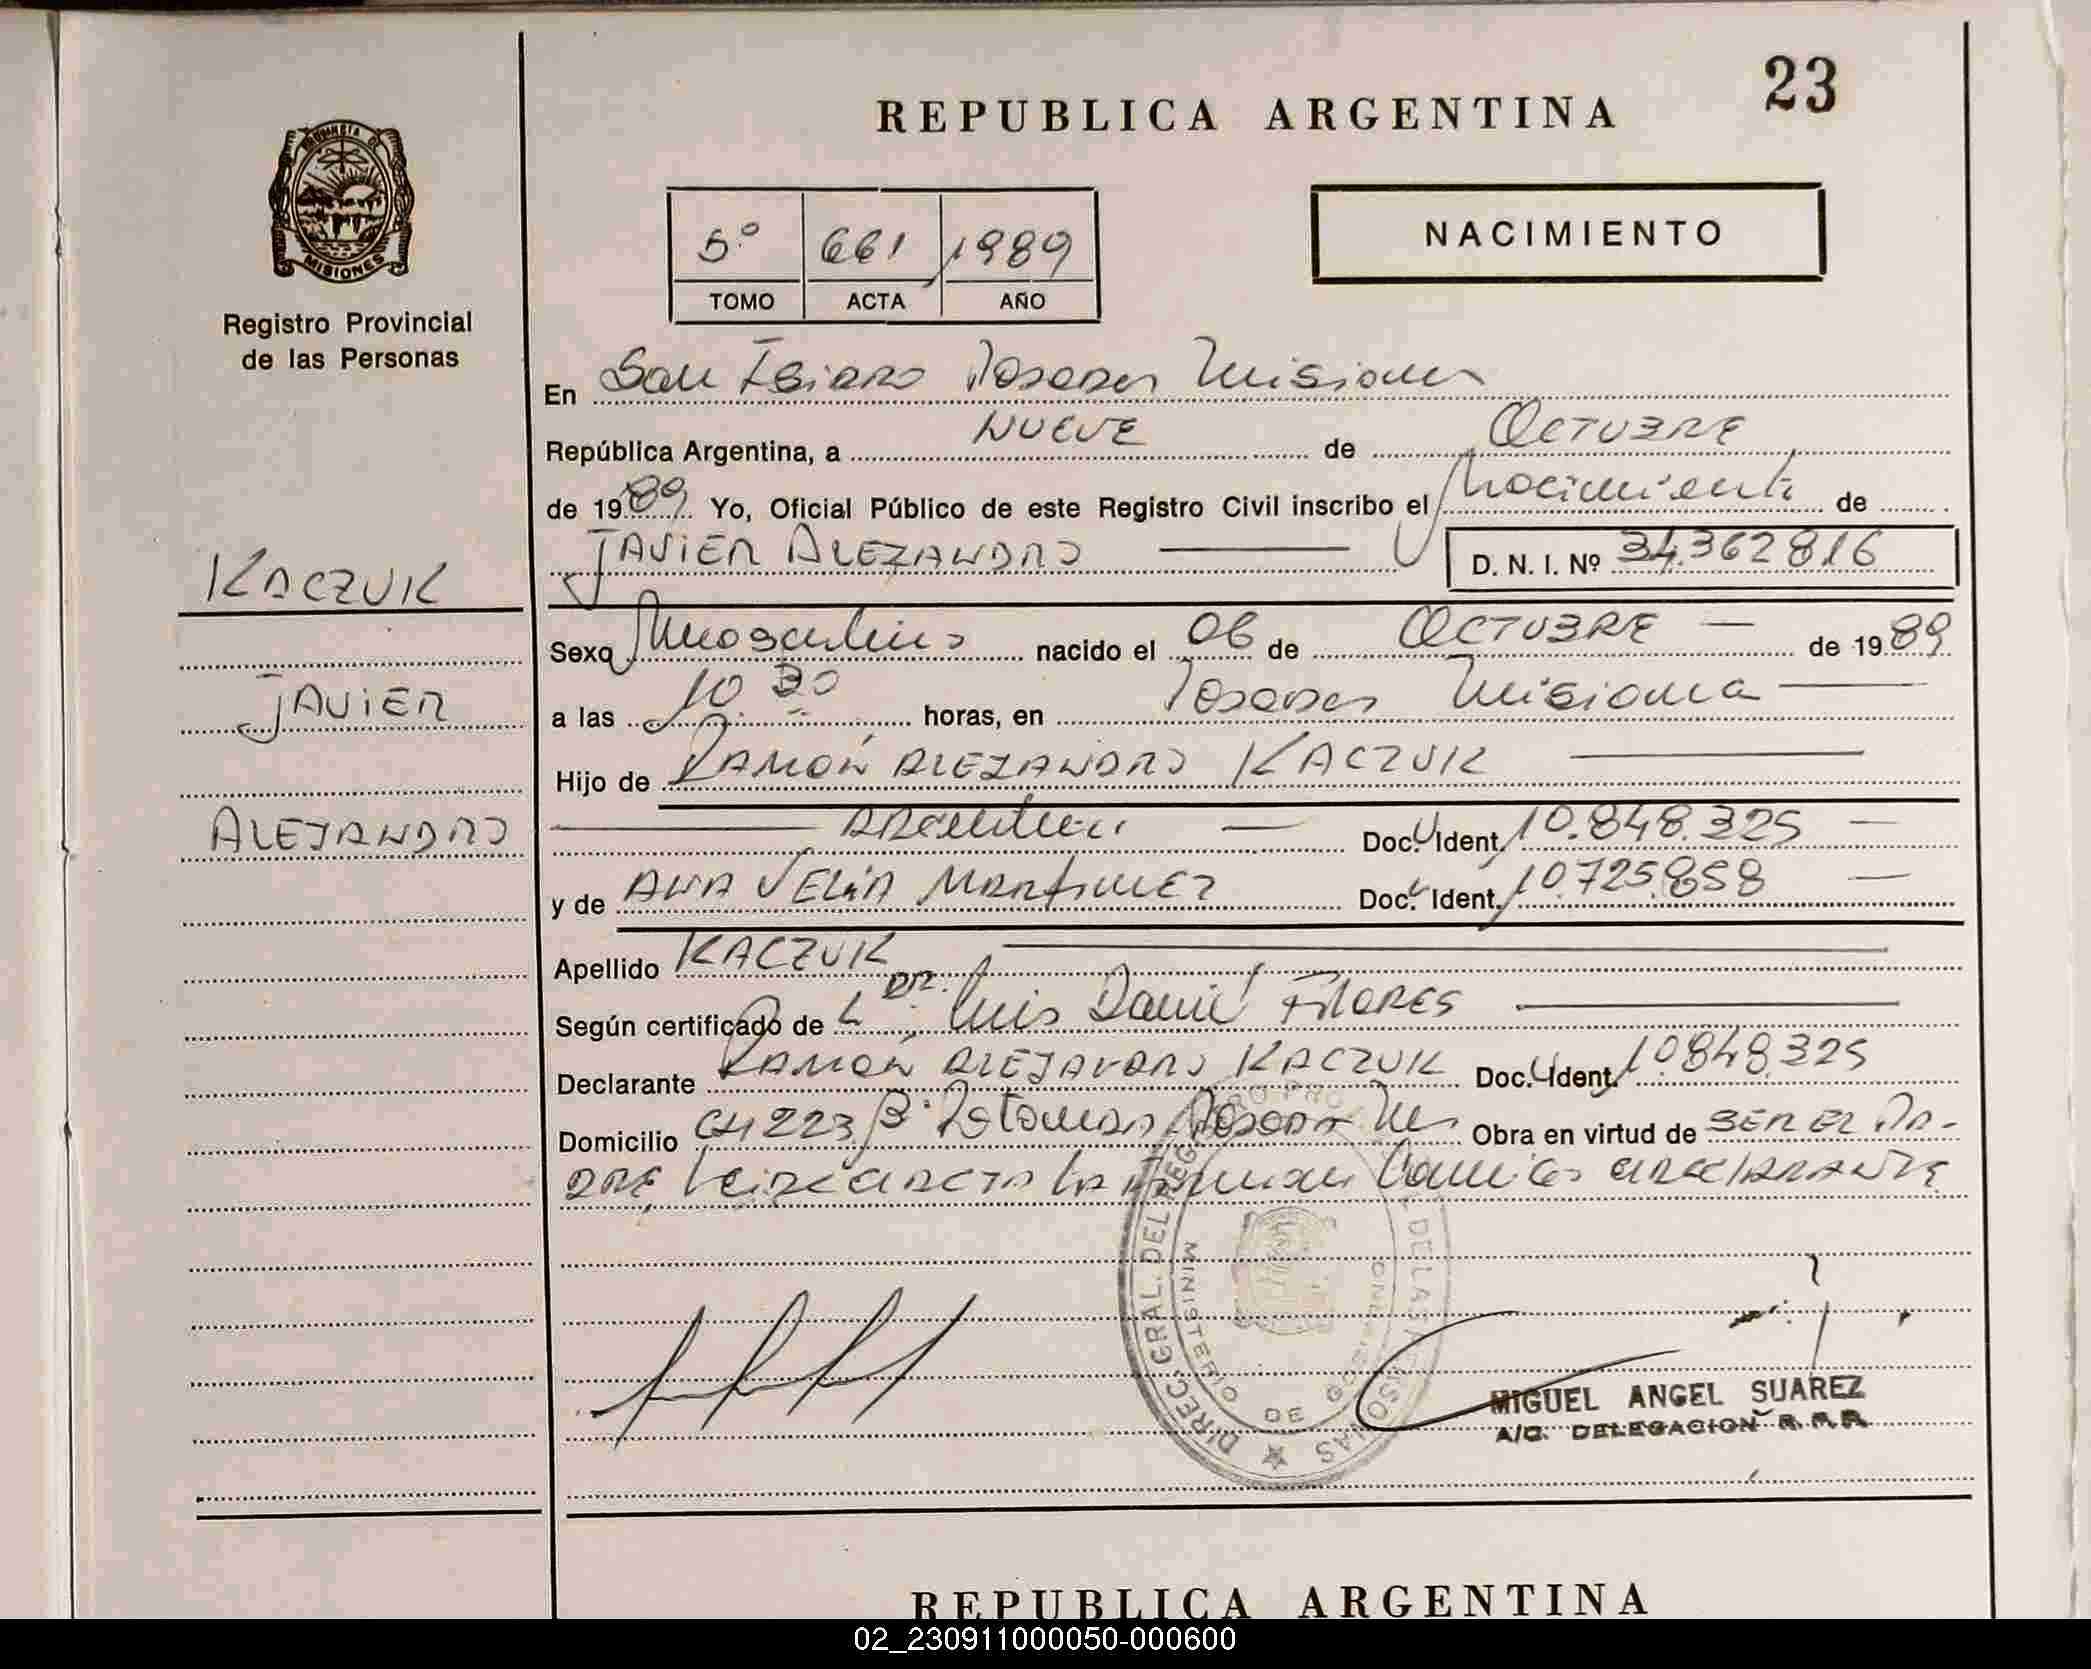 23
REPUBLICA ARGENTINA
PROVINCIA DE
MISIONES
NACIMIENTO
5º 661 1989
TOMO ACTA AÑO
Registro Provincial
de las Personas
En San Isidro Posadas Misiones
República Argentina, a NUEVE de OCTUBRE
de 1989 Yo, Oficial Público de este Registro Civil inscribo el Nacimiento de
JAVIER ALEJANDRO D. N. I. Nº 34.362816
KACZUK
JAVIER
ALEJANDRO
Sexo Masculino nacido el 06 de OCTUBRE de 1989
a las 10 30 horas, en Posadas Misiones
Hijo de RAMÓN ALEJANDRO KACZUK
Doc. Ident. 10.848.325
y de ANA VELIA MARTINEZ Doc. Ident. 10.725.858
Apellido KACZUK
Según certificado de DR. Luis Daniel FLORES
Declarante RAMÓN ALEJANDRO KACZUK Doc. Ident. 10.848.325
Domicilio CH 223 Bº Posadas Mnes Obra en virtud de SER EL PA-
DRE DECLARANTE
DIREC. GRAL. DEL REGISTRO PROV. DE LAS PERSONAS
MINISTERIO DE GOBIERNO
MIGUEL ANGEL SUAREZ
A/C. DELEGACION R. P. P.
REPUBLICA ARGENTINA
02_230911000050-000600